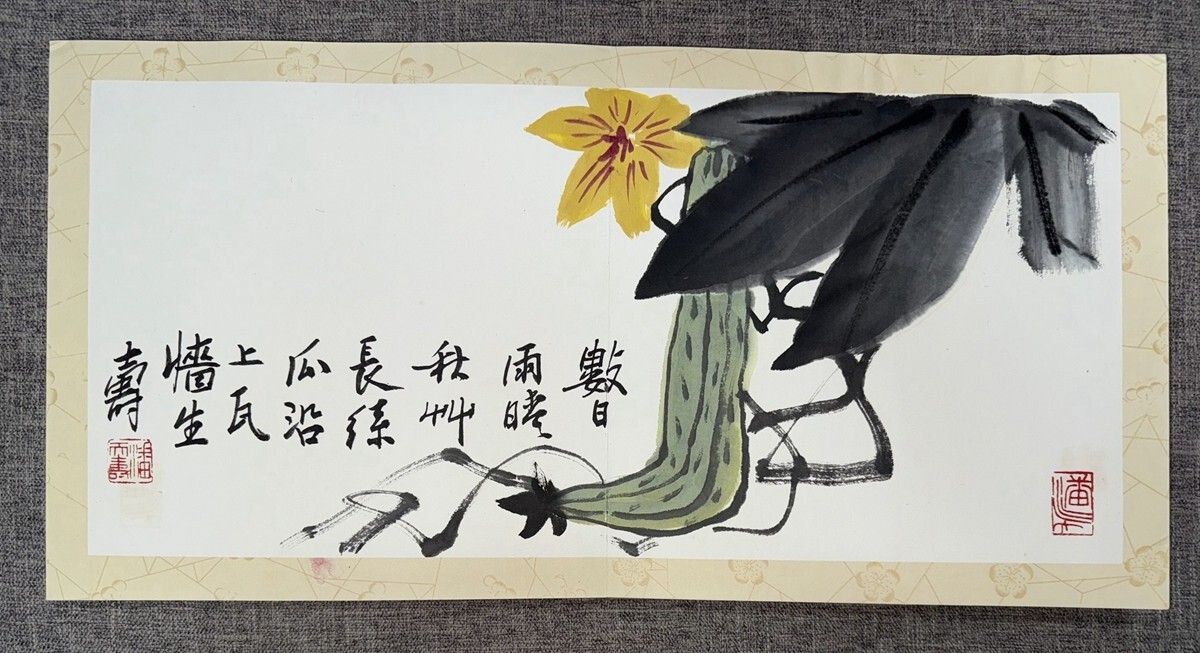 數日
雨晴
秋艸
長絲
瓜沿
上瓦
牆生
壽
潘天壽